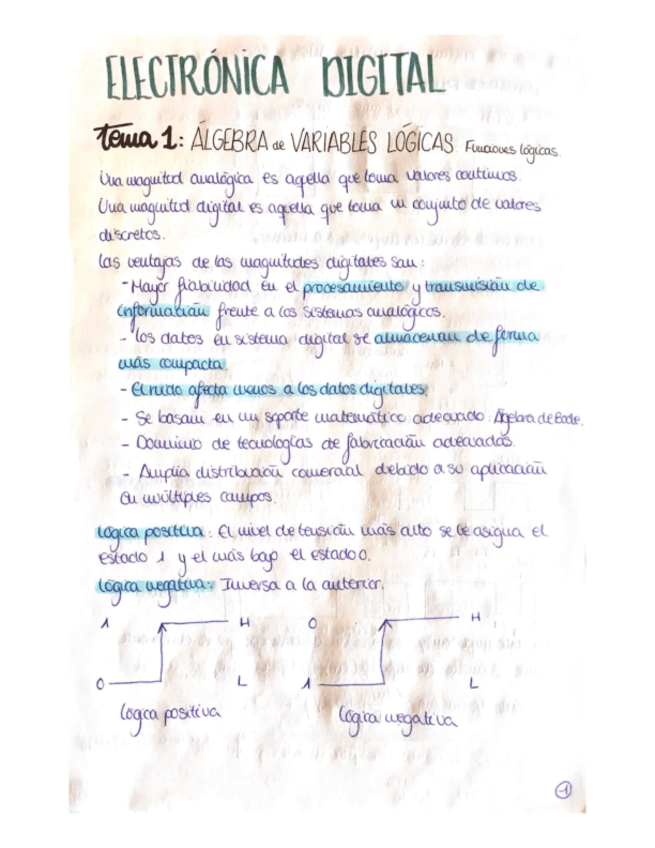 ELECTRÓNICA DIGITAL
tema 1: ÁLGEBRA de VARIABLES LÓGICAS Funciones lógicas.
Una magnitud analógica es aquella que toma valores continuos.
Una magnitud digital es aquella que toma un conjunto de valores
discretos.
Las ventajas de las magnitudes digitales son:
- Mayor fiabilidad en el procesamiento y transmisión de
información frente a los sistemas analógicos.
- Los datos en sistema digital se almacenan de forma
más compacta.
- El ruido afecta menos a los datos digitales
- Se basan en un soporte matemático adecuado. Álgebra de Boole.
- Dominio de tecnologías de fabricación adecuados.
- Amplia distribución comercial debido a su aplicación
en múltiples campos.
Lógica positiva: El nivel de tensión más alto se le asigna el
estado 1 y el más bajo el estado 0.
Lógica negativa: Inversa a la anterior.
1 H 0 H
0 L 1 L
Lógica positiva Lógica negativa
1